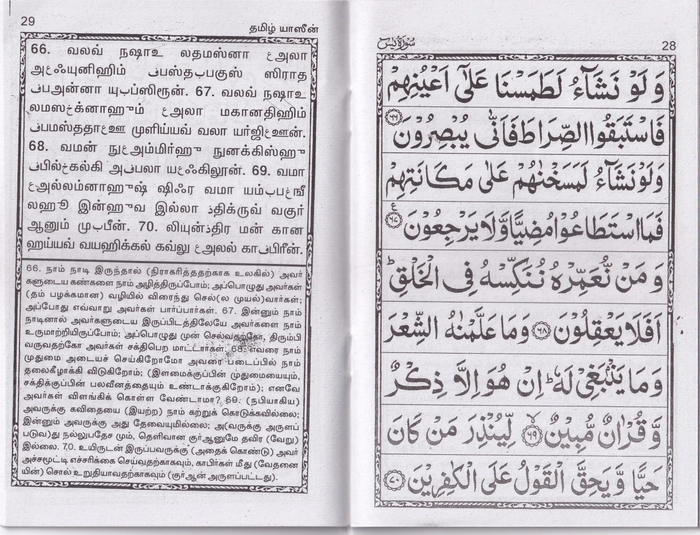 29
தமிழ் யாஸீன்
66. வலவ் நஷாஉ லதமஸ்னா عஅலா
அعஃயுனிஹிம் فபஸ்தبபகுஸ் ஸிராத
فபஅன்னா யுبப்ஸிரூன். 67. வலவ் நஷாஉ
لமஸخக்னாஹும் عஅலா மகானதிஹிம்
فபமஸ்ததாعஊ முளிய்யவ் வலா யர்ஜிعஊன்.
68. வமன் நுعஅம்மிர்ஹு நுனக்கிஸ்ஹு
فபில்خகல்கி அفபலா யعஃகிலூன். 69. வமா
عஅல்லம்னாஹுஷ் ஷிعஃர வமா யம்بபغغீ
லஹூ இன்ஹுவ இல்லா ذதிக்ருவ் வகுர்
ஆனும் முبபீன். 70. லியுன்ذதிர மன் கான
ஹய்யவ் வயஹிக்கல் கவ்லு عஅலல் காفபிரீன்.
66. நாம் நாடி இருந்தால் (நிராகரித்ததற்காக உலகில்) அவர்
களுடைய கண்களை நாம் அழித்திருப்போம்; அப்பொழுது அவர்கள்
(தம் பழக்கமான) வழியில் விரைந்து செல்(ல முயல்)வார்கள்;
அப்போது எவ்வாறு அவர்கள் பார்ப்பார்கள். 67. இன்னும் நாம்
நாடினால் அவர்களுடைய இருப்பிடத்திலேயே அவர்களை நாம்
உருமாற்றியிருப்போம்; அப்பொழுது முன் செல்வதற்கோ, திரும்பி
வருவதற்கோ அவர்கள் சக்திபெற மாட்டார்கள். 68. எவரை நாம்
முதுமை அடையச் செய்கிறோமோ அவரை படைப்பில் நாம்
தலைகீழாக்கி விடுகிறோம்; (இளமைக்குப்பின் முதுமையையும்,
சக்திக்குப்பின் பலவீனத்தையும் உண்டாக்குகிறோம்); எனவே
அவர்கள் விளங்கிக் கொள்ள வேண்டாமா? 69. (நபியாகிய)
அவருக்கு கவிதையை (இயற்ற) நாம் கற்றுக் கொடுக்கவில்லை;
இன்னும் அவருக்கு அது தேவையுமில்லை; அ(வருக்கு அருளப்
படுவ)து நல்லுபதேசமும், தெளிவான குர்ஆனுமே தவிர (வேறு)
இல்லை. 70. உயிருடன் இருப்பவருக்கு (அதைக் கொண்டு) அவர்
அச்சமூட்டி எச்சரிக்கை செய்வதற்காகவும், காபிர்கள் மீது (வேதனை
யின்) சொல் உறுதியாவதற்காகவும் (குர்ஆன் அருளப்பட்டது).
سُوْرَةُ يٰسٓ
28
وَلَوْ نَشَآءُ لَطَمَسْنَا عَلٰٓى اَعْيُنِهِمْ
فَاسْتَبَقُوا الصِّرَاطَ فَاَنّٰى يُبْصِرُوْنَ ۝٦٦
وَلَوْ نَشَآءُ لَمَسَخْنٰهُمْ عَلٰى مَكَانَتِهِمْ
فَمَا اسْتَطَاعُوْا مُضِيًّا وَّلَا يَرْجِعُوْنَ ۝٦٧ ع
وَمَنْ نُّعَمِّرْهُ نُنَكِّسْهُ فِى الْخَلْقِ ؕ
اَفَلَا يَعْقِلُوْنَ ۝٦٨ وَمَا عَلَّمْنٰهُ الشِّعْرَ
وَمَا يَنْۢبَغِىْ لَهٗ ؕ اِنْ هُوَ اِلَّا ذِكْرٌ
وَّقُرْاٰنٌ مُّبِيْنٌ ۝٦٩ لِّيُنْذِرَ مَنْ كَانَ
حَيًّا وَّيَحِقَّ الْقَوْلُ عَلَى الْكٰفِرِيْنَ ۝٧٠